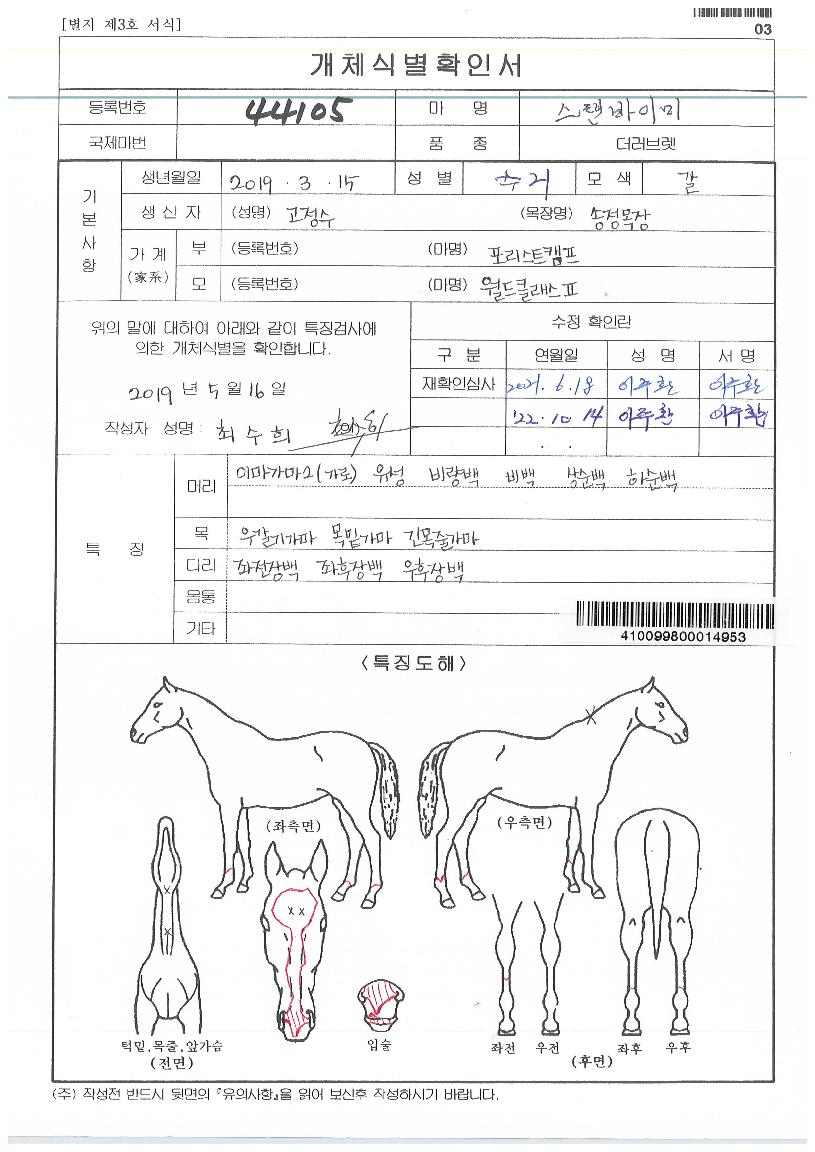 [별지 제3호 서식]
03
개체식별확인서
등록번호 44105 마 명 스텐바이미
국제마번 품 종 더러브렛
기본사항
생년월일 2019 . 3 . 15 성 별 수 거 모 색 갈
생 산 자 (성명) 고정수 (목장명) 송정목장
가 계 (家系) 부 (등록번호) (마명) 포리스트캠프
모 (등록번호) (마명) 월드클래스Ⅱ
위의 말에 대하여 아래와 같이 특징검사에
의한 개체식별을 확인합니다.
2019 년 5 월 16 일
작성자 성명 : 최수희
수정 확인란
구 분 연월일 성 명 서 명
재확인심사 2021. 6. 18 이주환 이주환
'22 . 10 . 14 이주환 이주환
. .
특 징
머리 이마가마2(가로) 유성 비량백 비백 상순백 하순백
목 우갈기가마 목밑가마 긴목줄가마
다리 좌전장백 좌후장백 우후장백
몸통
기타
410099800014953
<특징도해>
(좌측면) (우측면)
턱밑.목줄.앞가슴
(전면)
입술
좌전 우전 좌후 우후
(후면)
(주) 작성전 반드시 뒷면의 『유의사항』을 읽어 보신후 작성하시기 바랍니다.